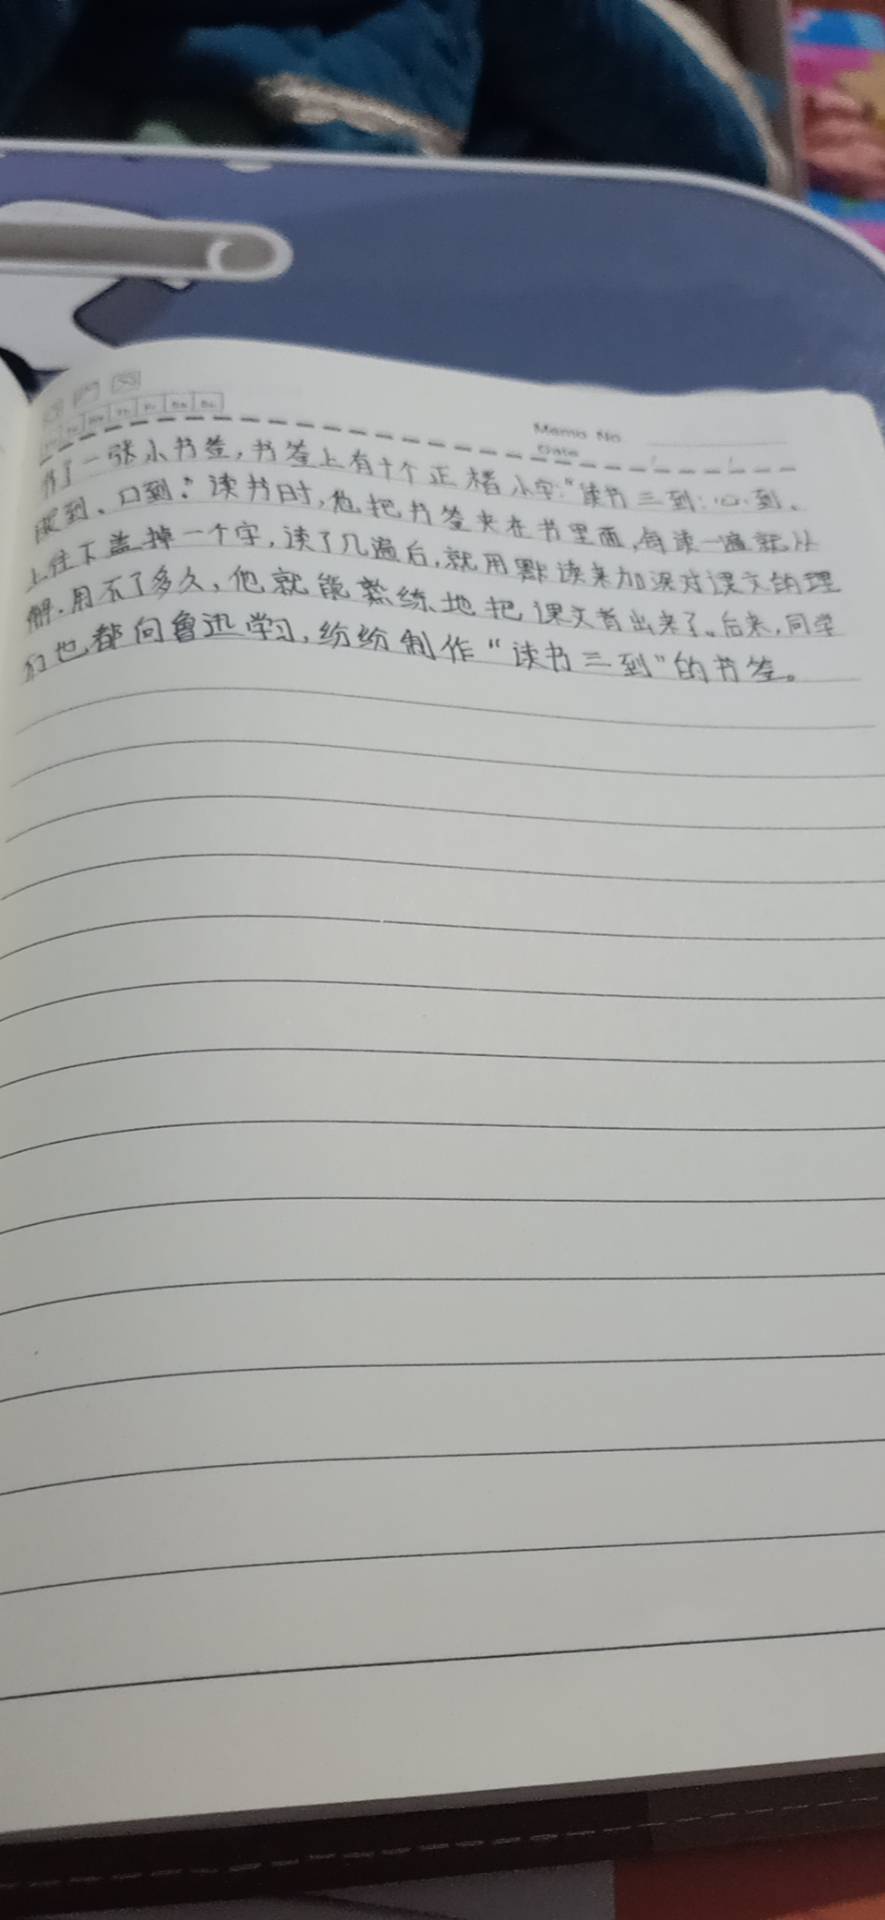 Memo No.
Date
了一张小书签,书签上有十个正楷小字:“读书三到:心到、
眼到、口到。”读书时,他把书签夹在书里面,每读一遍就从
上往下盖掉一个字,读了几遍后,就用默读来加深对课文的理
解.用不了多久,他就能熟练地把课文背出来了。后来,同学
们也都向鲁迅学习,纷纷制作“读书三到”的书签。